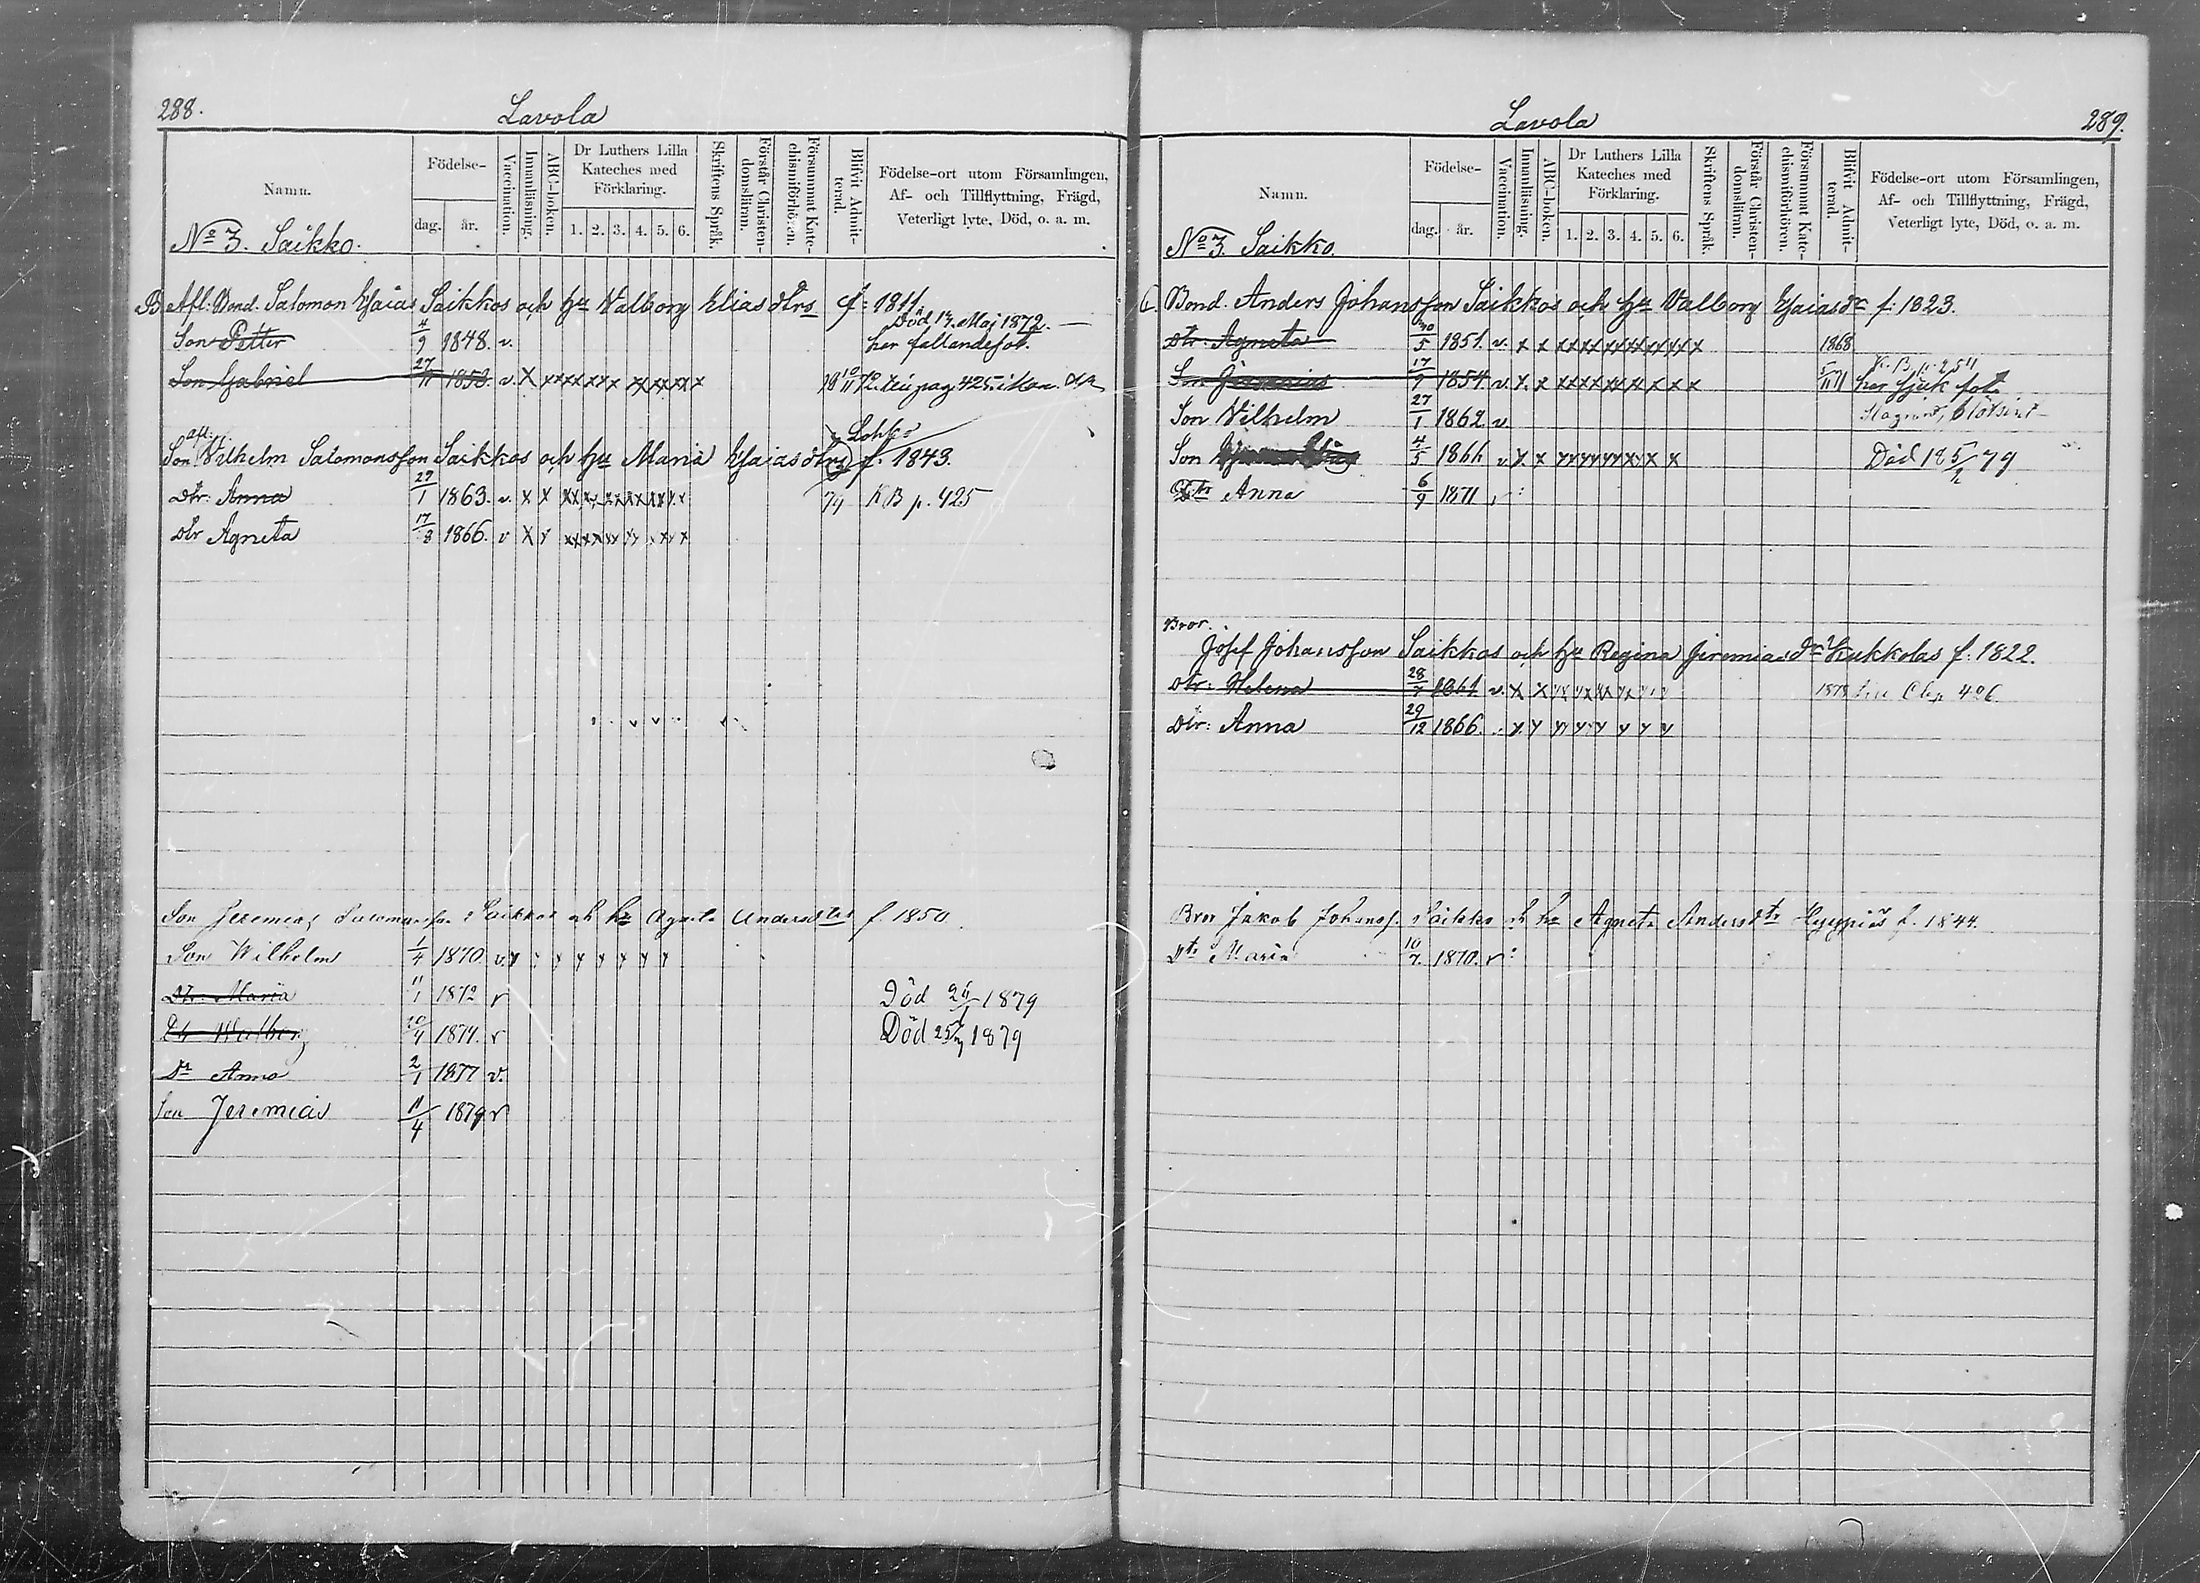 288.
Lavola
Namn.
Födelse-
dag.
år.
Vaccination.
Innanläsning.
ABC-boken.
Dr Luthers Lilla
Kateches med
Förklaring.
1. 2. 3. 4. 5. 6.
Skriftens Språk.
Förstår Christen-
domsläran.
Försummat Kate-
chismiförhören.
Blifvit Admit-
terad.
Födelse-ort utom Församlingen,
Af- och Tillflyttning, Frägd,
Veterligt lyte, Död, o. a. m.
No 3. Saikko.
B Afl. Bond. Salomon Esaias Saikkos och hu Valborg Eliasdtrs f: 1811.
Son Petter 4/9 1848. v. Död 17. Maj 1872.
har fallandesot.
Son Gabriel 27/11 1853. v. x
afl.
Son Vilhelm Salomonsson Saikkos och hu Maria Esaiasdtrs f. 1843.
Dtr: Anna 27/1 1863. v. x x 79 KB p. 425
Dtr Agneta 17/8 1866. v x
Son Jeremias Salomonsson Saikkos och hu Agneta Andersdtr f 1850.
Son Wilhelm 1/4 1870. v.
Dtr: Maria 11/1 1872 v Död 1879
Dtr Walborg 20/4 1874. v Död 1879
Dr Anna 2/1 1877 v.
Son Jeremias 11/4 1879 v
Lavola
289.
Namn.
Födelse-
dag.
år.
Vaccination.
Innanläsning.
ABC-boken.
Dr Luthers Lilla
Kateches med
Förklaring.
1. 2. 3. 4. 5. 6.
Skriftens Språk.
Förstår Christen-
domsläran.
Försummat Kate-
chismiförhören.
Blifvit Admit-
terad.
Födelse-ort utom Församlingen,
Af- och Tillflyttning, Frägd,
Veterligt lyte, Död, o. a. m.
No 3. Saikko.
C. Bond. Anders Johansson Saikkos och hu Valborg Esaiasdr f. 1823.
Dtr: Agneta 30/5 1851. v. x x 1868
Son Jeremias 17/9 1854. v. x. x har sjuk fot
Son Vilhelm 27/1 1862 v
Son 4/5 1866 v. x x Död 18 5/2 79
Dtr Anna 6/9 1871 v
Bror.
Josef Johansson Saikkos och hu Regina Jeremiasdr Kukkolas f: 1822.
Dtr: Helena 28/7 1861. v. x x 1878
Dtr: Anna 29/12 1866.
Bror Jakob Johanss. Saikko och hu Agneta Andersdtr Hyyppiäs f. 1844.
Dtr Maria 10/7 1870. v